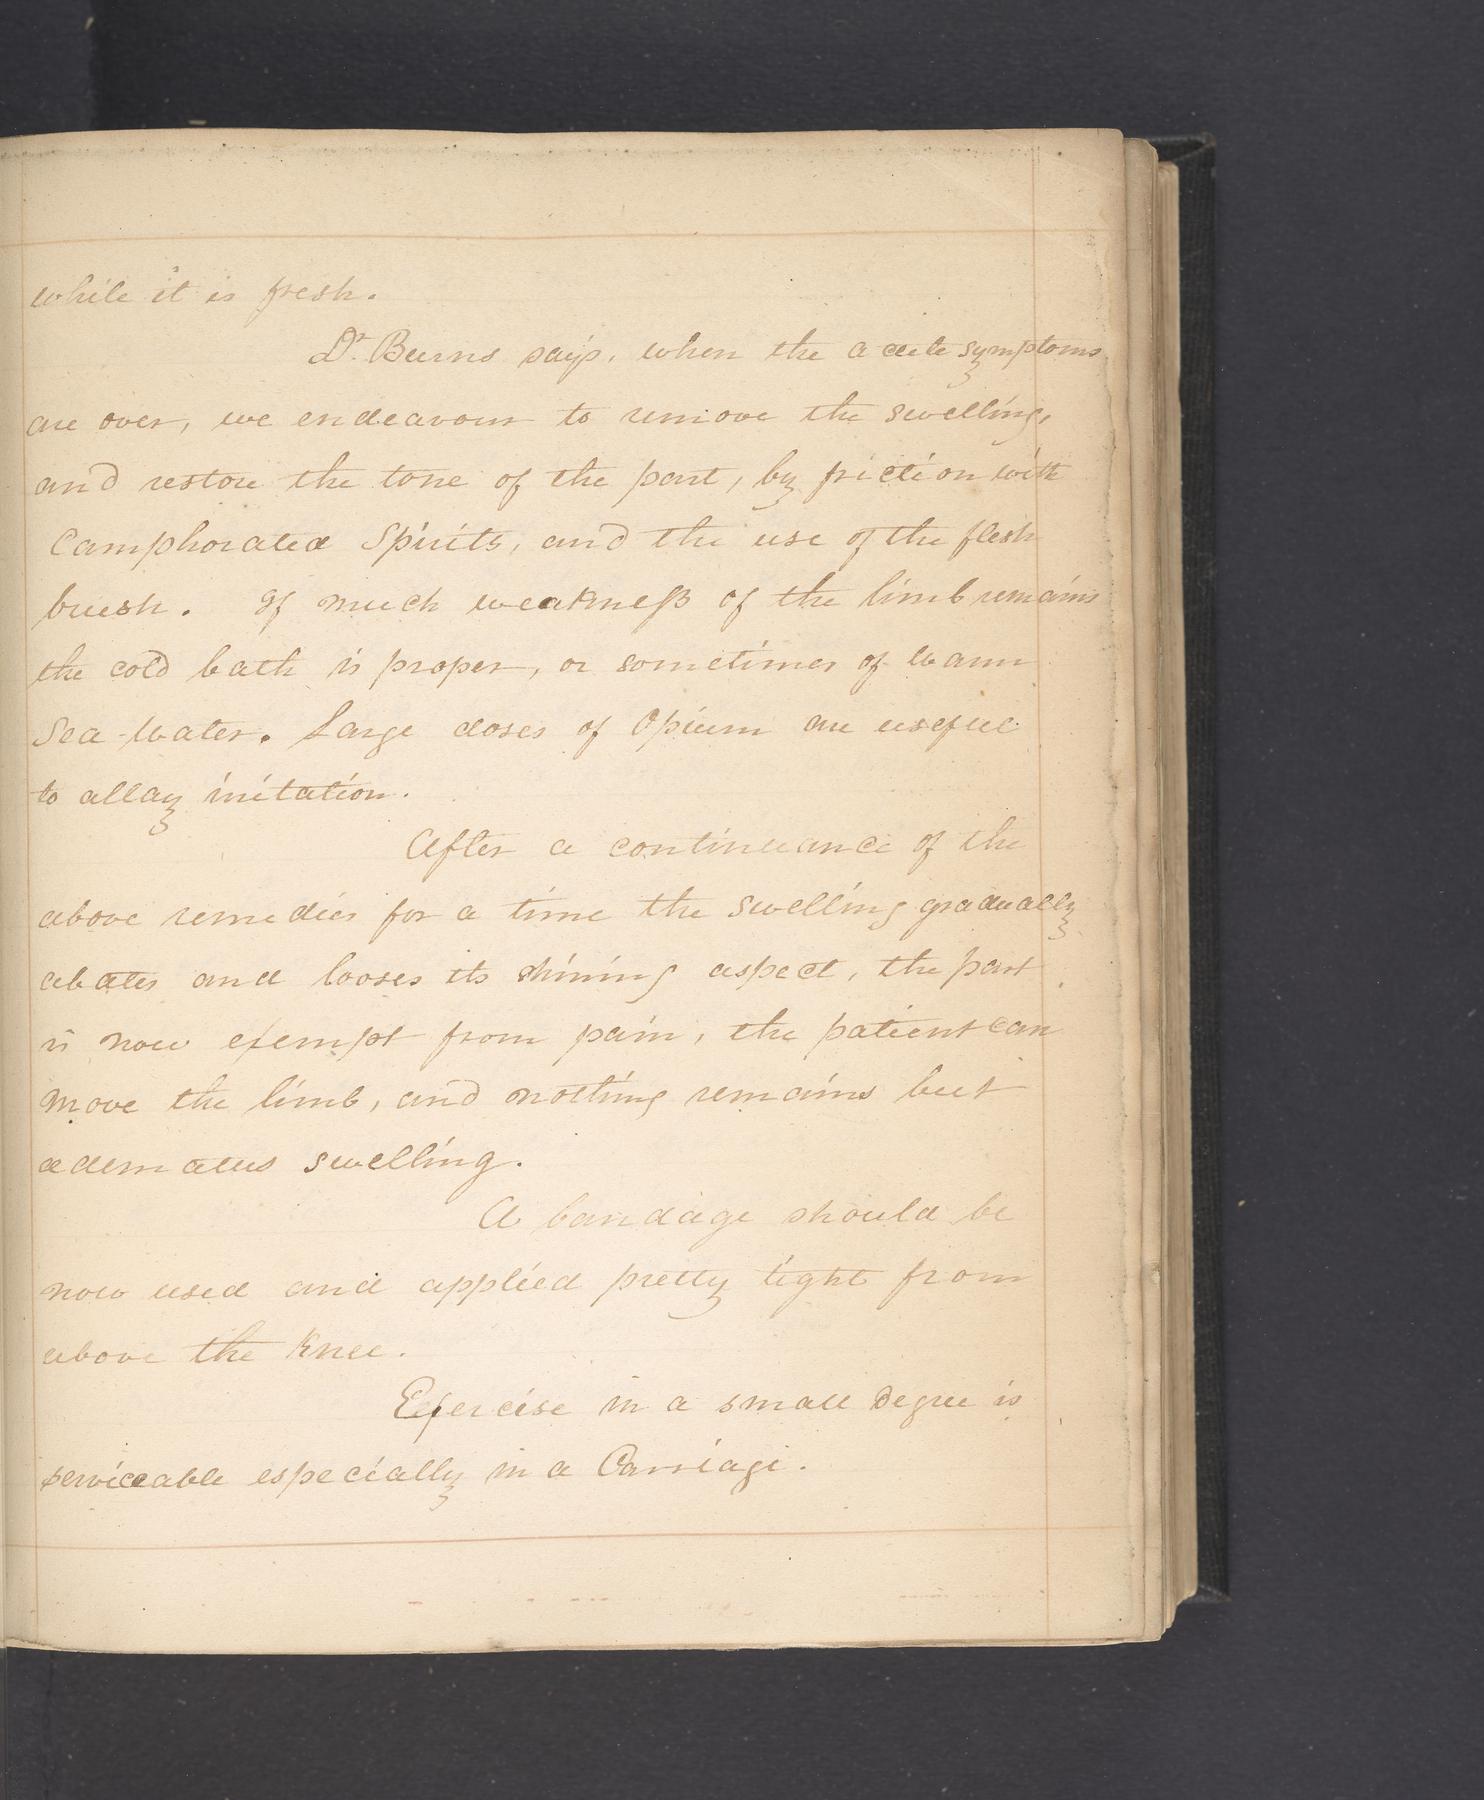 while it is fresh.
Dr. Burns says, when the acute symptoms
are over, we endeavour to remove the swelling,
and restore the tone of the part, by friction with
Camphorated Spirits, and the use of the flesh
brush. If much weakness of the limb remains
the cold bath is proper, or sometimes of warm
Sea-water. Large doses of Opium are useful
to allay irritation.
After a continuance of the
above remedies for a time the swelling gradually
abates and looses its shining aspect, the part
is now exempt from pain, the patient can
move the limb, and nothing remains but
œdematus swelling.
A bandage should be
now used and applied pretty tight from
above the Knee.
Exercise in a small degree is
serviceable especially in a Carriage.